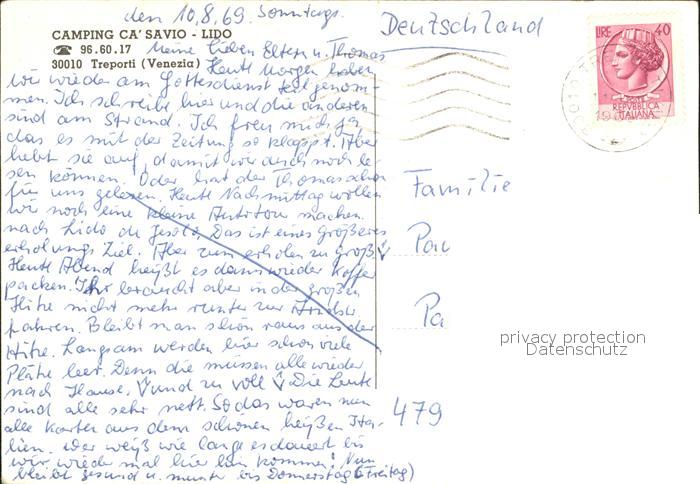 den 10.8.69. Sonntags.
CAMPING CA' SAVIO - LIDO
☎ 96.60.17
30010 Treporti (Venezia)
Meine lieben Eltern u. Thomas
Heute Morgen haben
wir wieder am Gottesdienst teilgenom-
men. Ich schreibe hier und die anderen
sind am Strand. Ich freu mich ja
das es mit der Zeitung so klappt. Aber
hebt sie auf, damit wir diese noch le-
sen können. Oder hat der Thomas schon
für uns gelesen. Heute Nachmittag wollen
wir noch eine kleine Autotour machen.
nach Lido de Jesolo. Das ist eines größeres
erholungs Ziel. Aber zum erholen zu groß.
Heute Abend heißt es dann wieder Koffer
packen. Ihr braucht aber in der großen
Hitze nicht mehr runter zur
fahren. Bleibt man schön raus aus der
Hitze. Langsam werden hier schon viele
Plätze leer. Denn die müssen alle wieder
nach Hause. und zu voll Die Leute
sind alle sehr nett. So das waren nun
alle Karten aus dem schönen heißen Ita-
lien. Wer weiß wie lange es dauert bis
wir wieder mal hier hin kommen! Nun
bleibt gesund u. munter bis Donnerstag (Freitag)
Deutschland
LIRE 40
REPVBBLICA
ITALIANA
Familie
Pau
Pa
479
privacy protection
Datenschutz